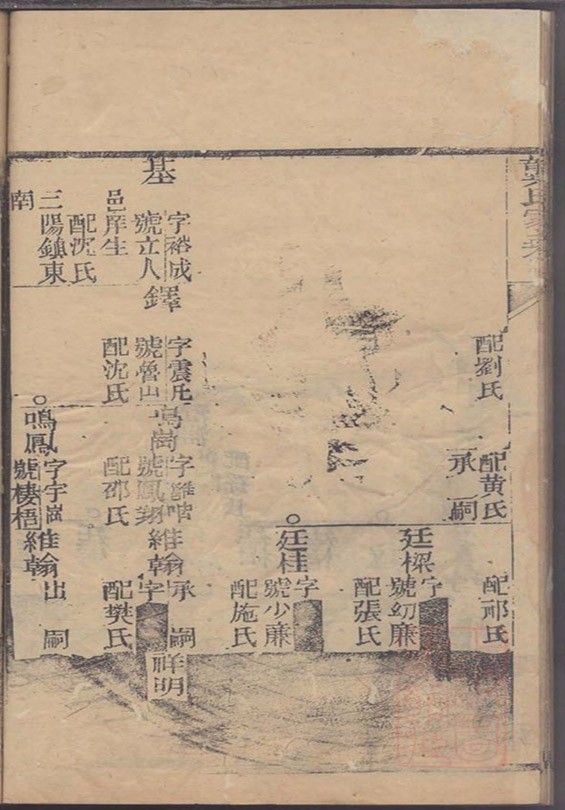 配劉氏
配黄氏
承嗣
配祁氏
廷樑
字
號幼廉
配張氏
廷桂
字
號少廉
配施氏
基
字裕成
號立人
邑庠生
配沈氏
三陽鎮東
南
鐸
字震凡
號魯山
配沈氏
鳴崗
號鳳翔
配邵氏
維翰
承嗣
字
祥明
配樊氏
鳴鳳
號棲梧
維翰出嗣